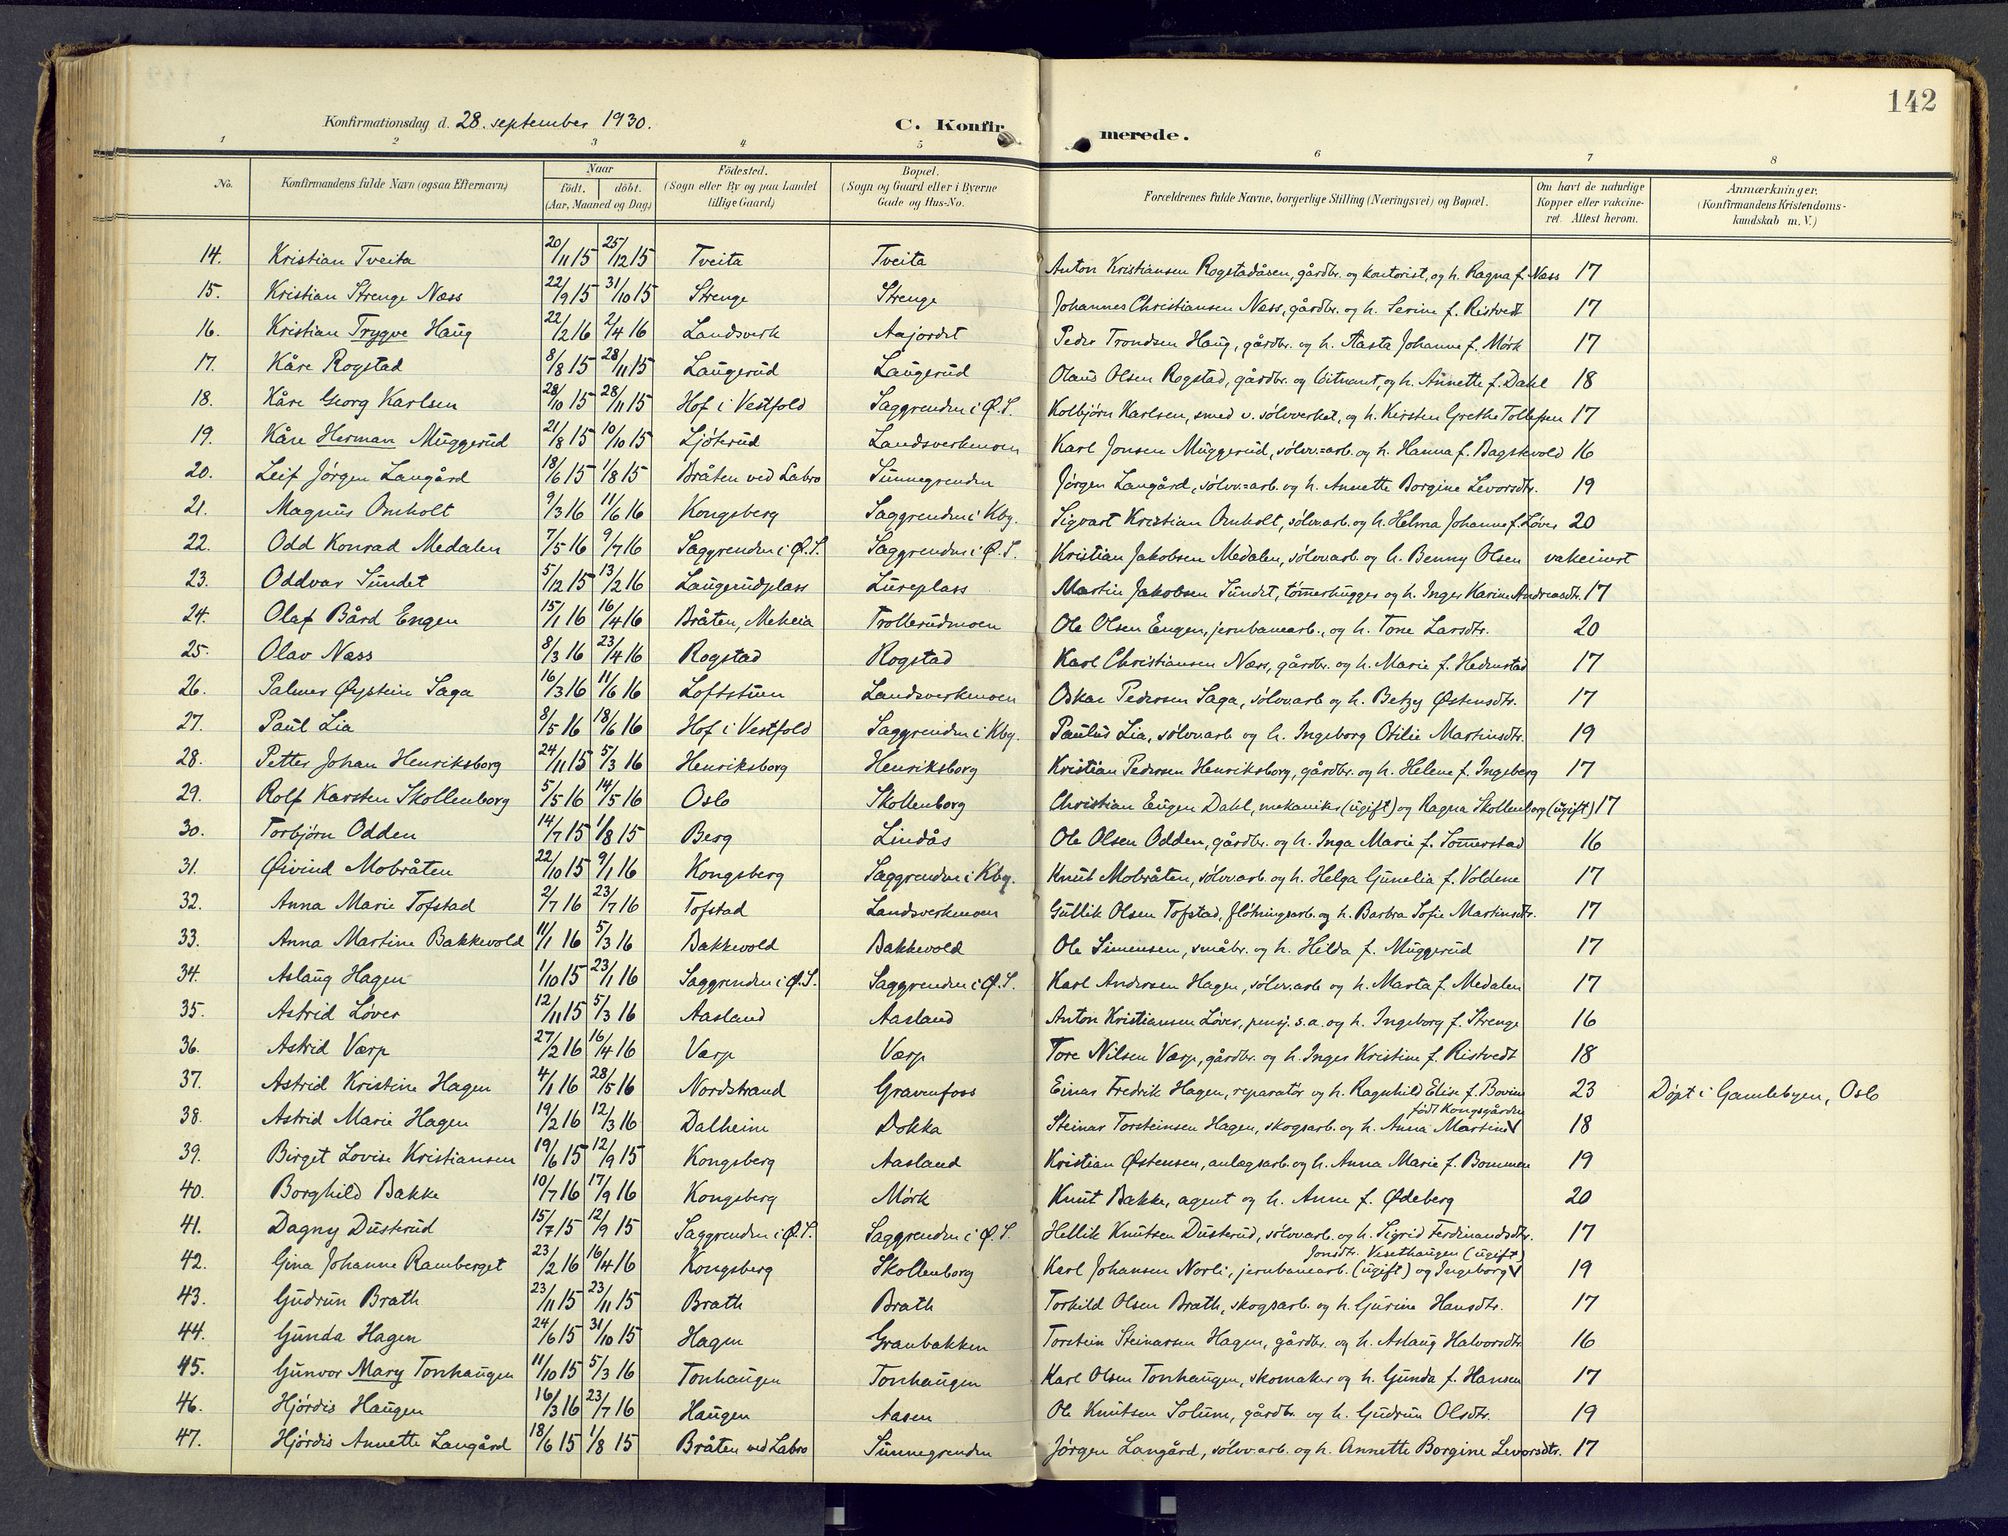 142
Konfirmationsdag d. 28. september 1930. C. Konfirmerede.
1 2 3 4 5 6 7 8
No. Konfirmandens fulde Navn (ogsaa Efternavn) Naar födt. döbt. (Aar, Maaned og Dag) Födested. (Sogn eller By og paa Landet tillige Gaard) Bopæl. (Sogn og Gaard eller i Byerne Gade og Hus-No. Forældrenes fulde Navne, borgerlige Stilling (Næringsvei) og Bopæl. Om havt de naturlige Kopper eller vakcineret. Attest herom. Anmærkninger. (Konfirmandens Kristendomskundskab m. V.)
14. Kristian Tveita 20/11 15 25/12 15 Tveita Tveita Anton Kristiansen Rogstadåsen, gårdbr. og kontorist, og h. Ragna f. Næss 17
15. Kristian Strenge Næss 22/9 15 31/10 15 Strenge Strenge Johannes Christiansen Næss, gårdbr. og h. Serine f. Ristvedt 17
16. Kristian Trygve Haug 22/2 16 2/4 16 Landsverk Aajordet Peder Trondsen Haug, gårdbr. og h. Aasta Johanne f. Mørk 17
17. Kåre Rogstad 8/8 15 28/11 15 Laugerud Laugerud Olaus Olsen Rogstad, gårdbr. og løitnant, og h. Annette f. Dahl 18
18. Kåre Georg Karlsen 28/10 15 28/11 15 Hof i Vestfold Saggrenden i Ø.S. Kolbjørn Karlsen, smed v. sølvverket, og h. Kirsten Grethe Tollefsen 17
19. Kåre Herman Muggerud 21/8 15 10/10 15 Ljøterud Landsverkmoen Karl Jonsen Muggerud, sølvv.arb. og h. Hanna f. Bagskvold 16
20. Leif Jørgen Langård 18/6 15 1/8 15 Bråten ved Labro Sunnegrenden Jørgen Langård, sølvv.arb. og h. Annette Borgine Levorsdtr. 19
21. Magnus Omholt 9/3 16 11/6 16 Kongsberg Saggrenden i Kbg. Sigvart Kristian Omholt, sølvv.arb. og h. Helma Johanne f. Løver 20
22. Odd Konrad Medalen 7/5 16 9/7 16 Saggrenden i Ø.S. Saggrenden i Ø.S. Kristian Jakobsen Medalen, sølvv.arb. og h. Benny Olsen vakcinert
23. Oddvar Sundet 5/12 15 13/2 16 Laugerudplass Lureplass Martin Jakobsen Sundet, tømmerhugger og h. Inger Karine Andreasdtr. 17
24. Olaf Bård Engen 15/1 16 16/4 16 Bråten, Meheia Trollerudmoen Ole Olsen Engen, jernbanearb., og h. Tone Larsdtr. 20
25. Olav Næss 8/3 16 23/4 16 Rogstad Rogstad Karl Christiansen Næss, gårdbr. og h. Marie f. Hedenstad 17
26. Palmer Øystein Saga 16/3 16 11/6 16 Loftstuen Landsverkmoen Oskar Pedersen Saga, sølvv.arb. og h. Betzy Østensdtr. 17
27. Paul Lia 8/5 16 18/6 16 Hof i Vestfold Saggrenden i Kbg. Paulus Lia, sølvv.arb og h. Ingeborg Otilie Martinsdtr. 19
28. Petter Johan Henriksborg 24/11 15 5/3 16 Henriksborg Henriksborg Kristian Pedersen Henriksborg, gårdbr. og h. Helene f. Ingeberg 17
29. Rolf Karsten Skollenborg 5/5 16 14/5 16 Oslo Skollenborg Christian Eugen Dahl, mekaniker (ugift) og Ragna Skollenborg (ugift) 17
30. Torbjørn Odden 14/7 15 1/8 15 Berg Lindås Ole Olsen Odden, gårdbr. og h. Inga Marie f. Sommerstad 16
31. Øivind Mobråten 22/10 15 9/1 16 Kongsberg Saggrenden i Kbg. Knut Mobråten, sølvv.arb. og h. Helga Gunelia f. Voldene 17
32. Anna Marie Tofstad 2/7 16 23/7 16 Tofstad Landsverkmoen Gullik Olsen Tofstad, fløtningsarb. og h. Barbra Sofie Martinsdtr. 17
33. Anna Martine Bakkevold 11/1 16 5/3 16 Bakkevold Bakkevold Ole Simensen, småbr. og h. Hilda f. Muggerud 17
34. Aslaug Hagen 1/10 15 23/1 16 Saggrenden i Ø.S. Saggrenden i Ø.S. Karl Andersen Hagen, sølvv.arb og h. Marta f. Medalen 17
35. Astrid Løver 12/11 15 5/3 16 Aasland Aasland Anton Kristiansen Løver, pensj. s.a. og h. Ingeborg f. Strenge 16
36. Astrid Værp 27/2 16 16/4 16 Værp Værp Tore Nilsen Værp, gårdbr. og h. Inger Kristine f. Ristvedt 18
37. Astrid Kristine Hagen 4/1 16 28/5 16 Nordstrand Gravenfoss Einar Fredrik Hagen, reparatør og h. Ragnhild Elise f. Bovim 23 Døpt i Gamlebyen, Oslo
38. Astrid Marie Hagen 19/2 16 12/3 16 Dalheim Dokka Steinar Torsteinsen Hagen, skogsarb. og h. Anna Martine √ født Kongsgården 18
39. Birget Lovise Kristiansen 19/6 15 12/9 15 Kongsberg Aasland Kristian Østensen, anlægsarb. og h. Anna Marie f. Bommen 19
40. Borghild Bakke 10/7 16 17/9 16 Kongsberg Mørk Knut Bakke, agent og h. Anne f. Ødeberg 20
41. Dagny Dusterud 15/7 15 12/9 15 Saggrenden i Ø.S. Saggrenden i Ø.S. Hellik Knutsen Dusterud, sølvv.arb. og h. Sigrid Ferdinandsdtr. 17
42. Gina Johanne Ramberget 23/2 16 16/4 16 Kongsberg Skollenborg Karl Johansen Norli, jernbanearb. (ugift) og Ingeborg √ Jonsdtr. Vesethaugen (ugift) 19
43. Gudrun Brath 23/11 15 23/11 15 Brath Brath Torkild Olsen Brath, skogsarb. og h. Gurine Hansdtr. 17
44. Gunda Hagen 24/6 15 31/10 15 Hagen Granbakken Torstein Steinarsen Hagen, gårdbr. og h. Aslaug Halvorsdtr 16
45. Gunvor Mary Tonhaugen 11/10 15 5/3 16 Tonhaugen Tonhaugen Karl Olsen Tonhaugen, skomaker og h. Gunda f. Hansen 17
46. Hjørdis Haugen 16/3 16 23/7 16 Haugen Aasen Ole Knutsen Solum, gårdbr. og h. Gudrun Olsdtr. 19
47. Hjørdis Annette Langård 18/6 15 1/8 15 Bråten ved Labro Sunnegrenden Jørgen Langård, sølvv.arb. og h. Annette Borgine Levorsdtr. 17